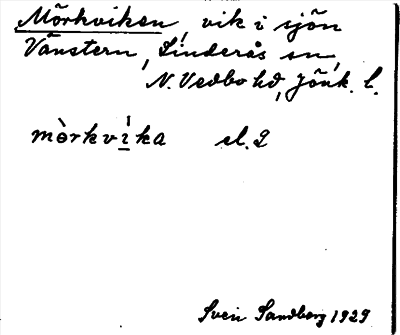 Mörkviken, vik i sjön
Vänstern, Linderås sn,
N. Vedbo hd, Jönk. l.
mò̱rkví̱ka el. 2
Sven Sandberg 1929